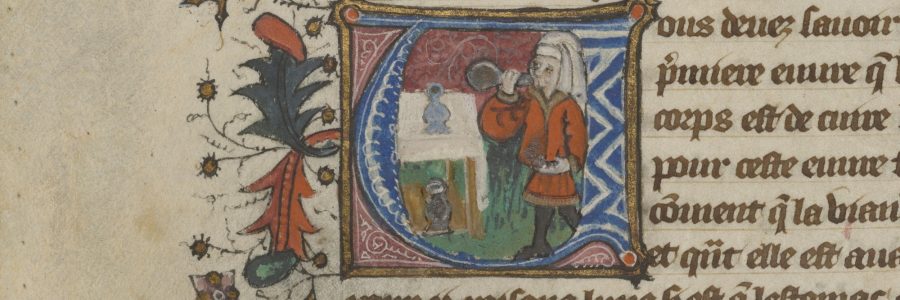 Vous deuez sauoir
p̄miere euure q̄ l
corps est de cuire
pour ceste euure
cōment q̄ la vian
et qūt elle est aua